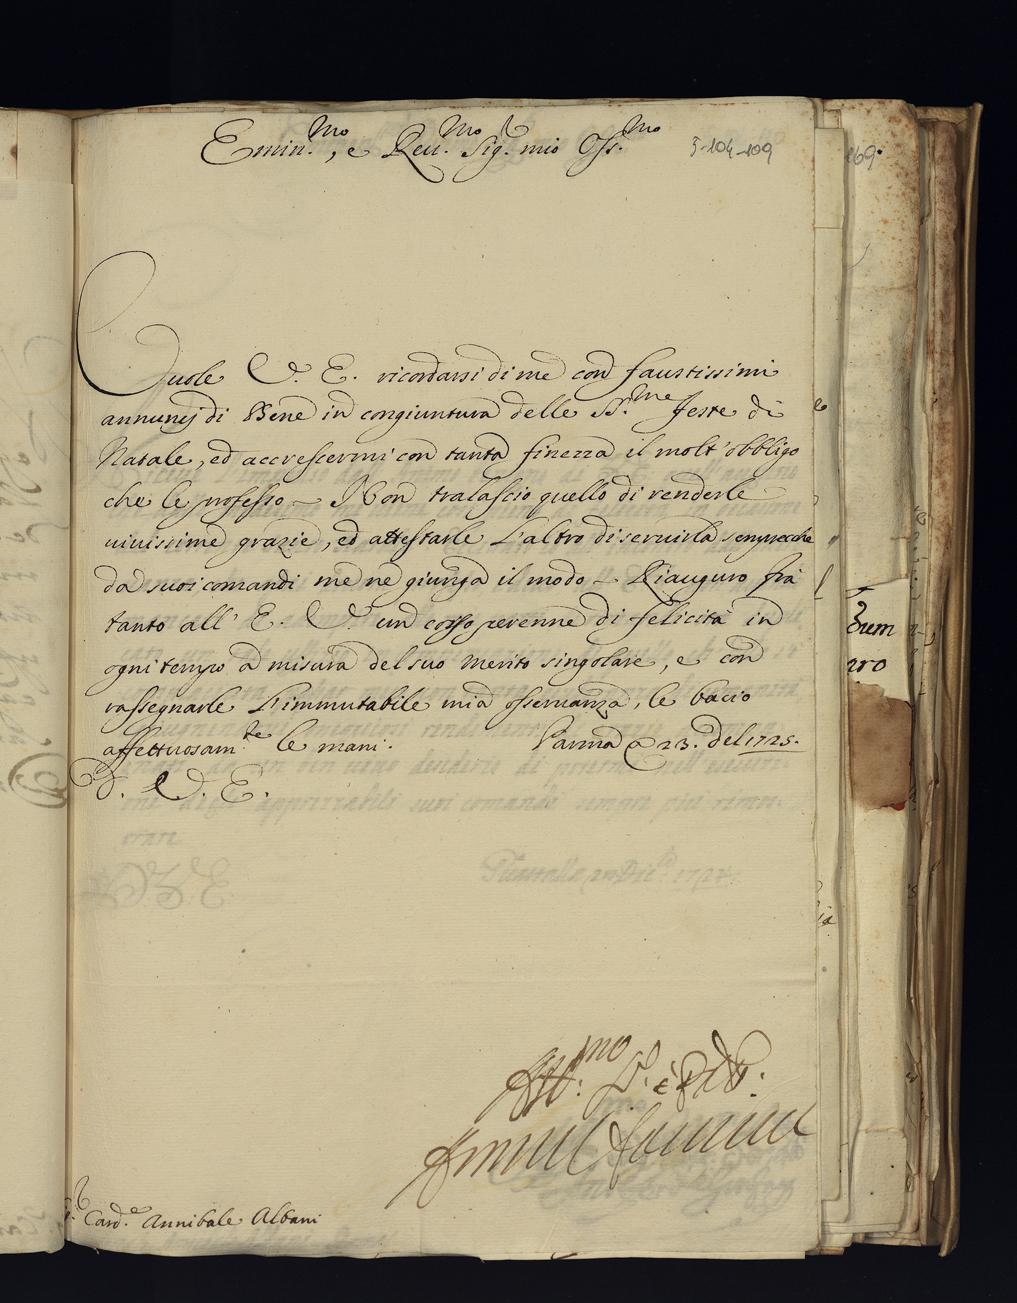 Emin.mo, e Reu.mo Sig.r mio Oss.mo
3-104-109
169.
Vuole V. E. ricordarsi di me con faustissimi
annunzj di Bene in congiuntura delle SS.me Feste di
Natale, ed accrescermi con tanta finezza il molt'obbligo
che le professo. Non tralascio quello di renderle
viuissime grazie, ed attestarle l'altro di seruirla sempreche
da suoi comandi me ne giunga il modo. Riauguro frà
tanto all' E. V. un corso perenne di felicità in
ogni tempo a misura del suo merito singolare, e con
rassegnarle l'immutabile mia osseruanza, le bacio
affettuosam.te le mani. Parma a 23. del 1725.
D. V. E.
Aff.mo
Card.e Annibale Albani